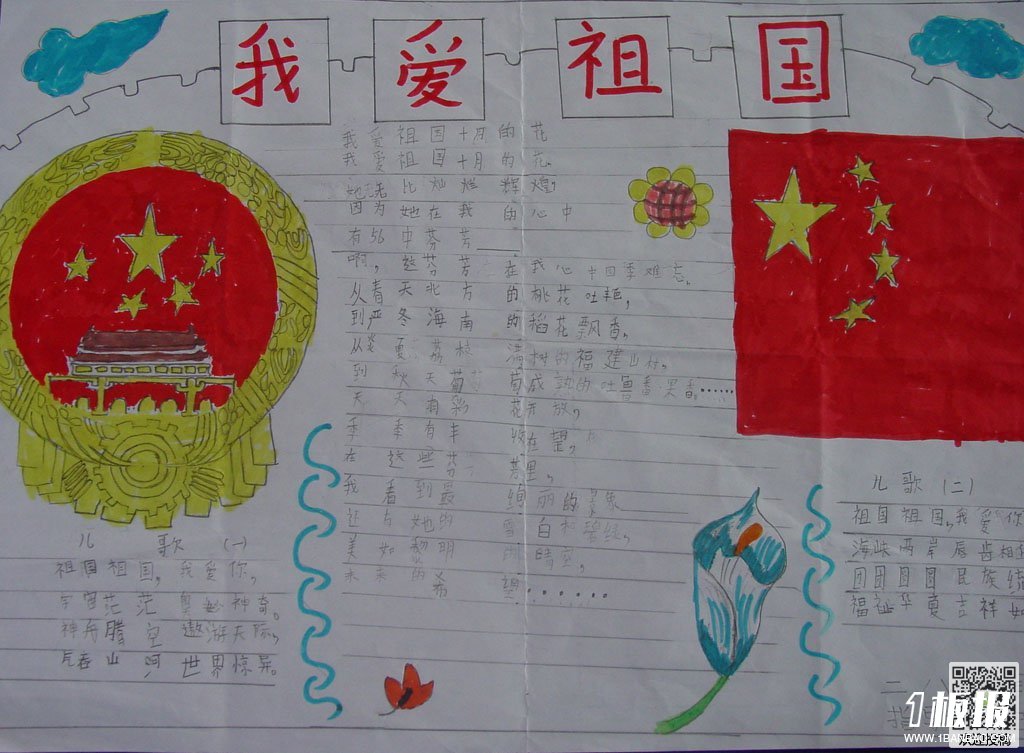 我爱祖国
我爱祖国十月的花
我爱祖国十月的花
她比灿烂辉煌,
因为她在我的心中
有56中芬芳
啊,这芬芳在我心中四季难忘。
从春天北方的桃花吐艳,
到严冬海南的稻花飘香,
从炎夏荔枝满树的福建山村,
到秋天葡萄成熟的吐鲁番果香。……
天天有彩花开放,
季季有丰收在望,
在这些芬芳里,
我看到最绚丽的景象
还有她的雪白和碧绿,
美如黎明的晴空,
未来的希望......
儿歌(一)
祖国祖国,我爱你,
宇宙茫茫奥妙神奇。
神舟腾空遨游天际,
气吞山河世界惊异。
儿歌(二)
祖国祖国,我爱你
海峡两岸唇齿相
团圆圆圆民族
福祉华夏吉祥如
二(八)
1板报
WWW.1BANBAO.COM